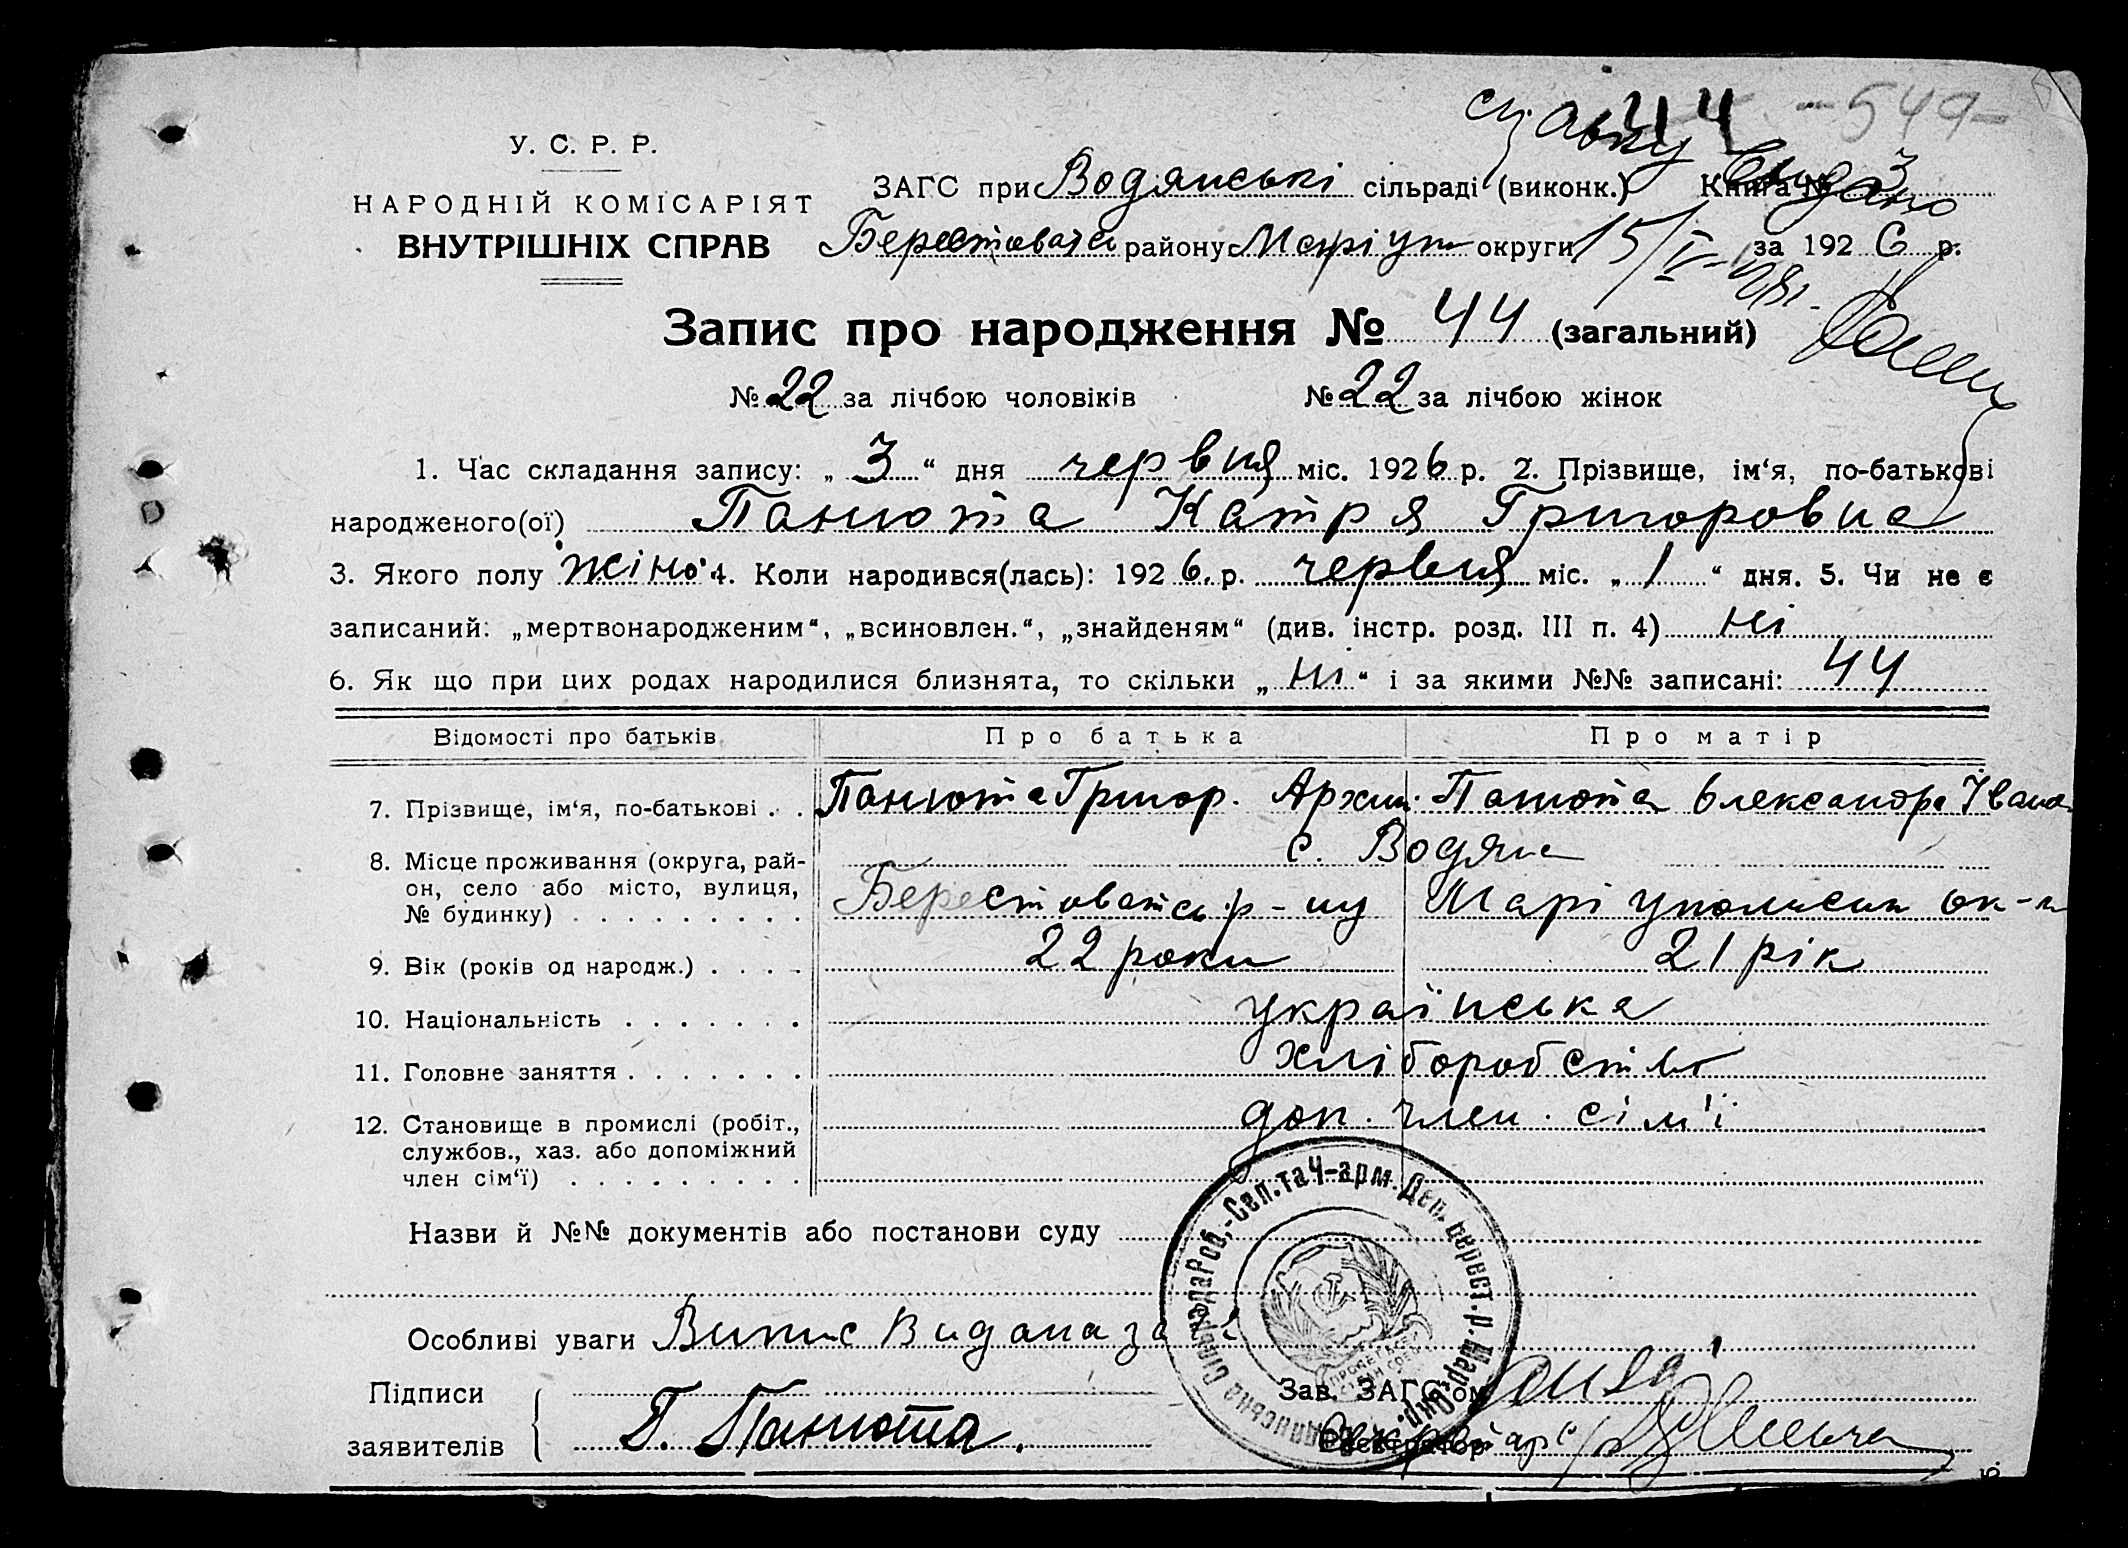 44 -549-
справку
видано
15/V-
У. С. Р. Р.
НАРОДНІЙ КОМІСАРІЯТ
ВНУТРІШНІХ СПРАВ
ЗАГС при Водянські сільраді (виконк.) Книга № 3
Берестоватськ району Маріуп округи за 1926 р.
Запис про народження № 44 (загальний)
№ 22 за лічбою чоловіків № 22 за лічбою жінок
1. Час складання запису: „ 3 “ дня червня міс. 1926 р. 2. Прізвище, ім‘я, по-батькові
народженого(ої) Панюта Катря Григоровна
3. Якого полу жіно. 4. Коли народився(лась): 1926. р. червня міс. „ 1 “ дня. 5. Чи не є
записаний: „мертвонародженим“, „всиновлен.“, „знайденям“ (див. інстр. розд. III п. 4) ні
6. Як що при цих родах народилися близнята, то скільки „ ні “ і за якими №№ записані: 44
Відомості про батьків Про батька Про матір
7. Прізвище, ім‘я, по-батькові . . Панюта Григор. Архип. Панюта Олександра Івано
8. Місце проживання (округа, рай- с. Водяне
он, село або місто, вулиця, Берестоватськ. р-ну Маріупольськ ок-и
№ будинку) . . . . . . . . .
9. Вік (років од народж.) . . . . 22 роки 21 рік
10. Національність . . . . . . . українська
11. Головне заняття . . . . . . . хліборобство
12. Становище в промислі (робіт., доп. член. сім'ї
службов., хаз. або допоміжний
член сім‘ї) . . . . . . . . .
Назви й №№ документів або постанови суду
Особливі уваги Випис видана за
Підписи Зав. ЗАГС‘ом
заявителів Г. Панюта. Секретарь